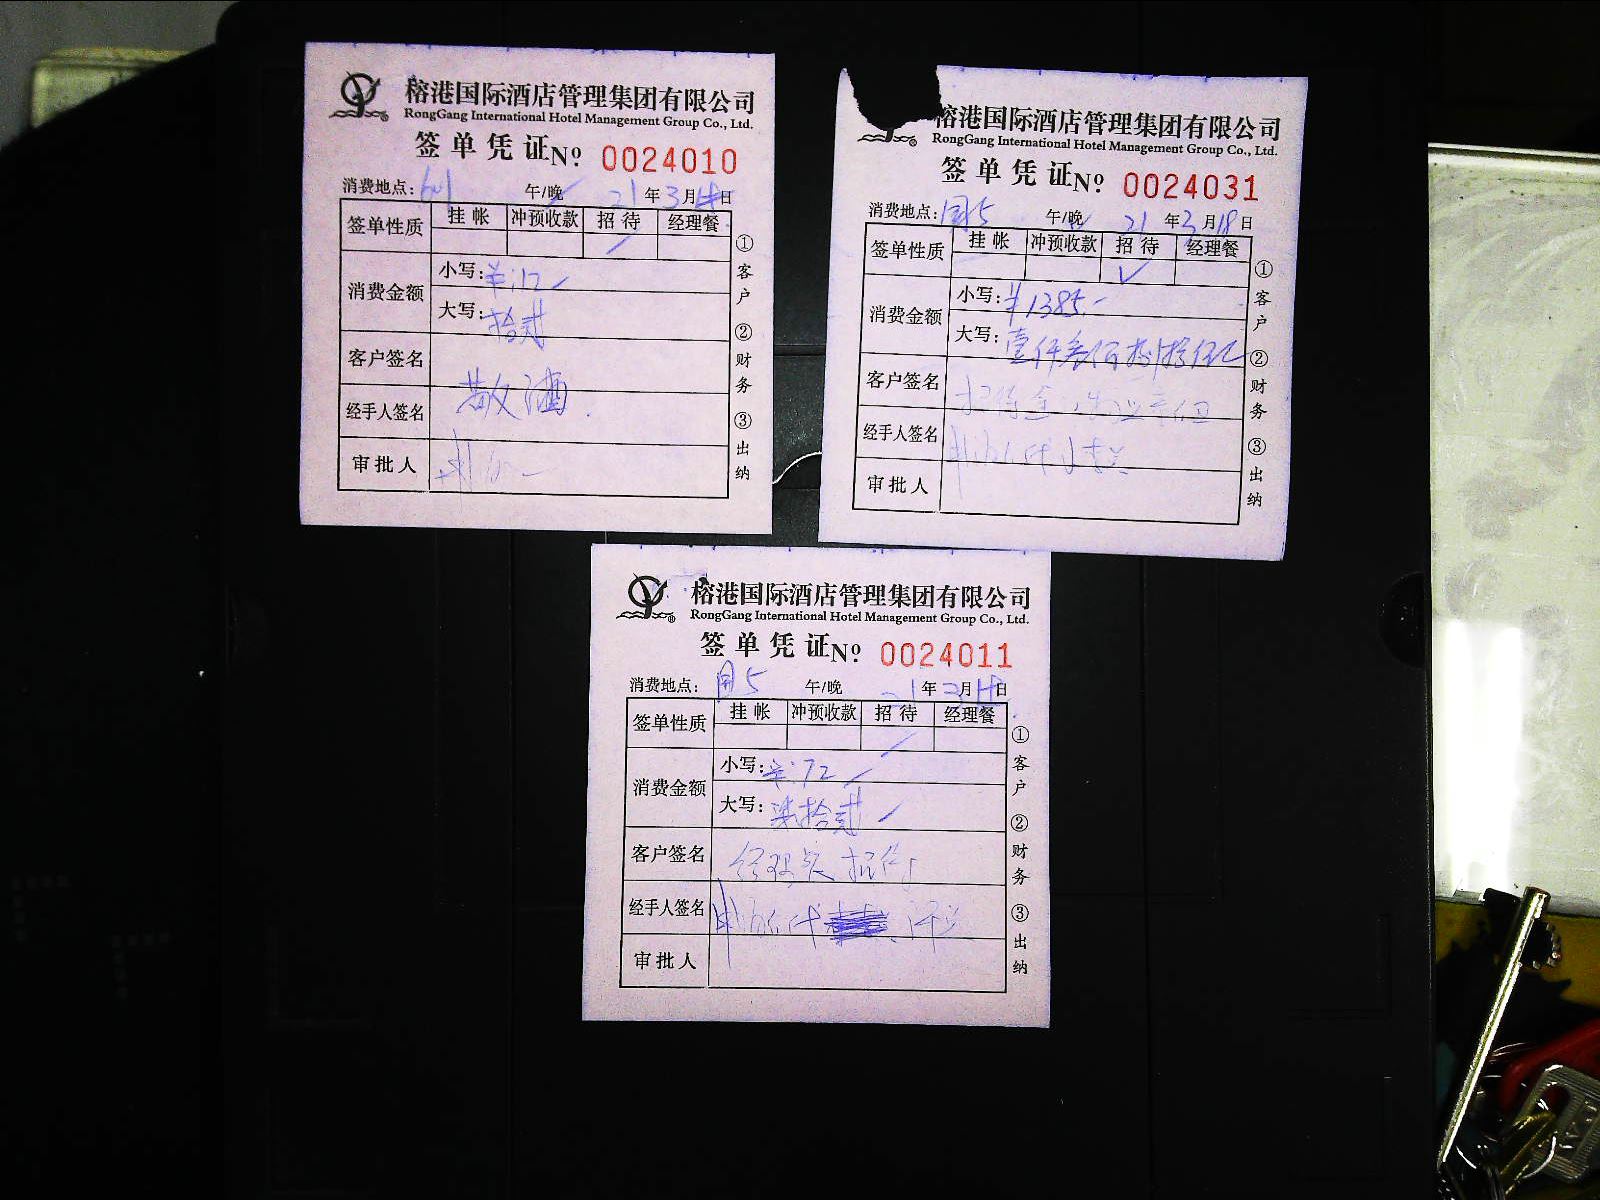 榕港国际酒店管理集团有限公司
RongGang International Hotel Management Group Co., Ltd.
签单凭证 Nº 0024010
消费地点: 601 午/晚 21年3月18日
签单性质 挂帐 冲预收款 招待 经理餐
消费金额 小写:¥:12
大写:拾贰
客户签名
散酒
经手人签名
审批人
①客户 ②财务 ③出纳
榕港国际酒店管理集团有限公司
RongGang International Hotel Management Group Co., Ltd.
签单凭证 Nº 0024031
消费地点: 5 午/晚 21年3月18日
签单性质 挂帐 冲预收款 招待 经理餐
✓
消费金额 小写:¥1385.-
大写:壹仟叁佰捌拾伍元
客户签名
经手人签名
审批人
①客户 ②财务 ③出纳
榕港国际酒店管理集团有限公司
RongGang International Hotel Management Group Co., Ltd.
签单凭证 Nº 0024011
消费地点: 5 午/晚 21年3月18日
签单性质 挂帐 冲预收款 招待 经理餐
消费金额 小写:¥:72
大写:柒拾贰
客户签名 招待
经手人签名
审批人
①客户 ②财务 ③出纳